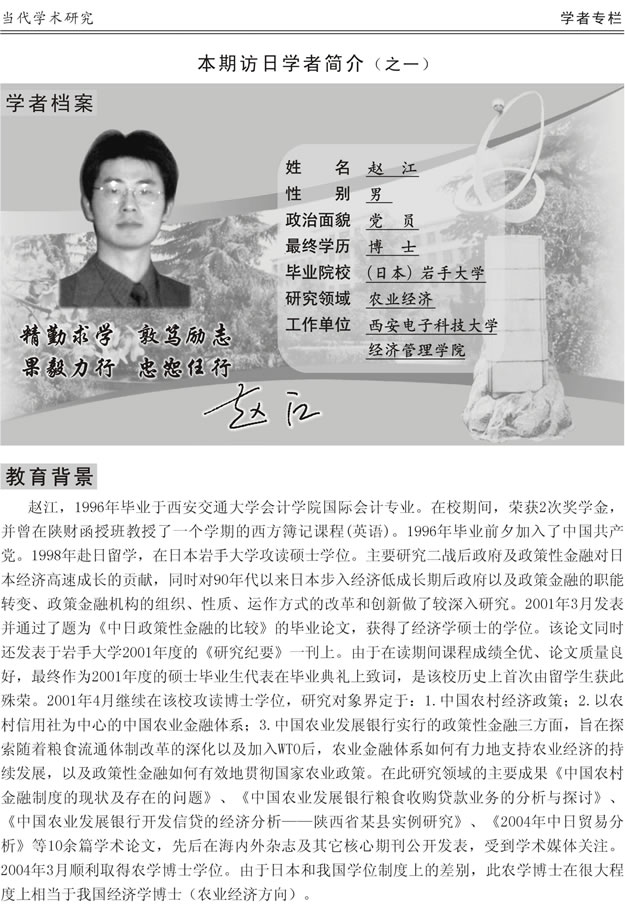 当代学术研究
学者专栏
本期访日学者简介（之一）
学者档案
姓　　名 赵 江
性　　别 男
政治面貌 党 员
最终学历 博 士
毕业院校 (日本) 岩手大学
研究领域 农业经济
工作单位 西安电子科技大学
经济管理学院
精勤求学 敦笃励志
果毅力行 忠恕任行
赵江
教育背景
赵江，1996年毕业于西安交通大学会计学院国际会计专业。在校期间，荣获2次奖学金，
并曾在陕财函授班教授了一个学期的西方簿记课程(英语)。1996年毕业前夕加入了中国共产
党。1998年赴日留学，在日本岩手大学攻读硕士学位。主要研究二战后政府及政策性金融对日
本经济高速成长的贡献，同时对90年代以来日本步入经济低成长期后政府以及政策金融的职能
转变、政策金融机构的组织、性质、运作方式的改革和创新做了较深入研究。2001年3月发表
并通过了题为《中日政策性金融的比较》的毕业论文，获得了经济学硕士的学位。该论文同时
还发表于岩手大学2001年度的《研究纪要》一刊上。由于在读期间课程成绩全优、论文质量良
好，最终作为2001年度的硕士毕业生代表在毕业典礼上致词，是该校历史上首次由留学生获此
殊荣。2001年4月继续在该校攻读博士学位，研究对象界定于：1.中国农村经济政策；2.以农
村信用社为中心的中国农业金融体系；3.中国农业发展银行实行的政策性金融三方面，旨在探
索随着粮食流通体制改革的深化以及加入WTO后，农业金融体系如何有力地支持农业经济的持
续发展，以及政策性金融如何有效地贯彻国家农业政策。在此研究领域的主要成果《中国农村
金融制度的现状及存在的问题》、《中国农业发展银行粮食收购贷款业务的分析与探讨》、
《中国农业发展银行开发信贷的经济分析——陕西省某县实例研究》、《2004年中日贸易分
析》等10余篇学术论文，先后在海内外杂志及其它核心期刊公开发表，受到学术媒体关注。
2004年3月顺利取得农学博士学位。由于日本和我国学位制度上的差别，此农学博士在很大程
度上相当于我国经济学博士（农业经济方向）。